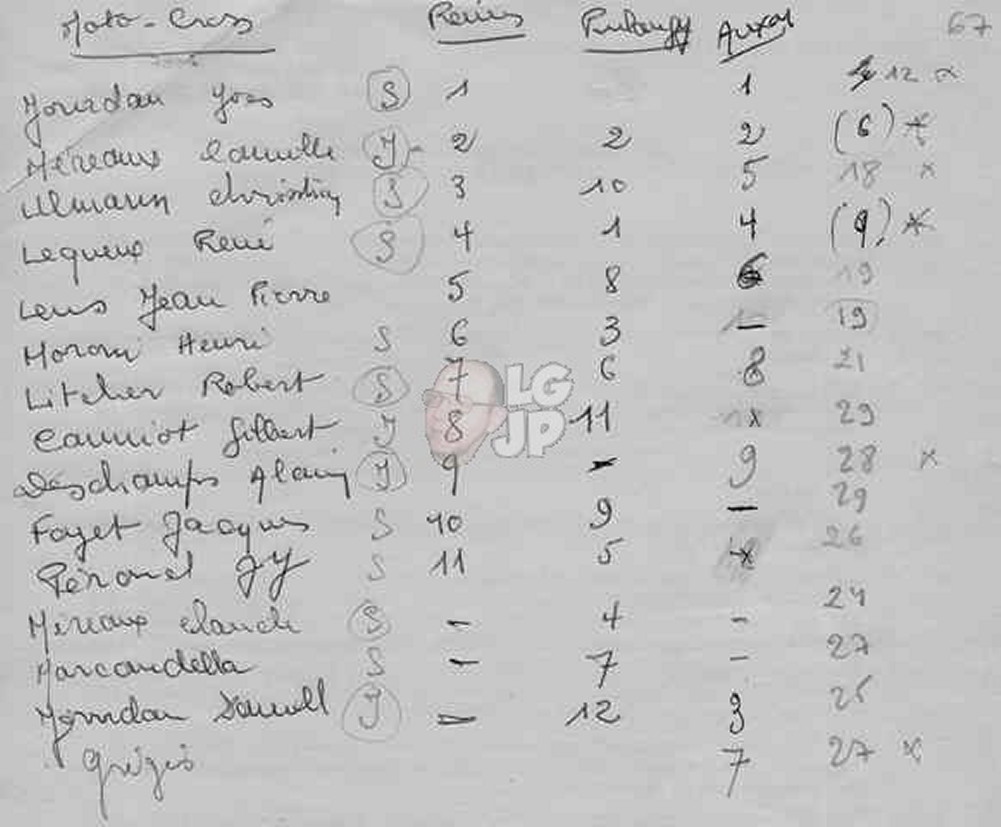 Moto-Cross Reims Auxon 67
Jourdan Yves S 1 1 12 x
Méreaux Camille J - 2 2 2 (6) *
Ulmann Christian S 3 10 5 18 x
Lequeux René S 4 1 4 (9) *
Lens Jean Pierre 5 8 6 19
Moroni Henri S 6 3 - 19
Litcher Robert S 7 6 8 21
LG
Canniot Gilbert J 8 11 x 29
JP
Deschamps Alain J 9 - 9 28 x
Fayet Jacques S 10 9 - 29
Péraud JY S 11 5 x 26
Méreaux Claude S - 4 - 24
Marcandella S - 7 - 27
Jourdan J - 12 3 25
Grigis 7 27 x